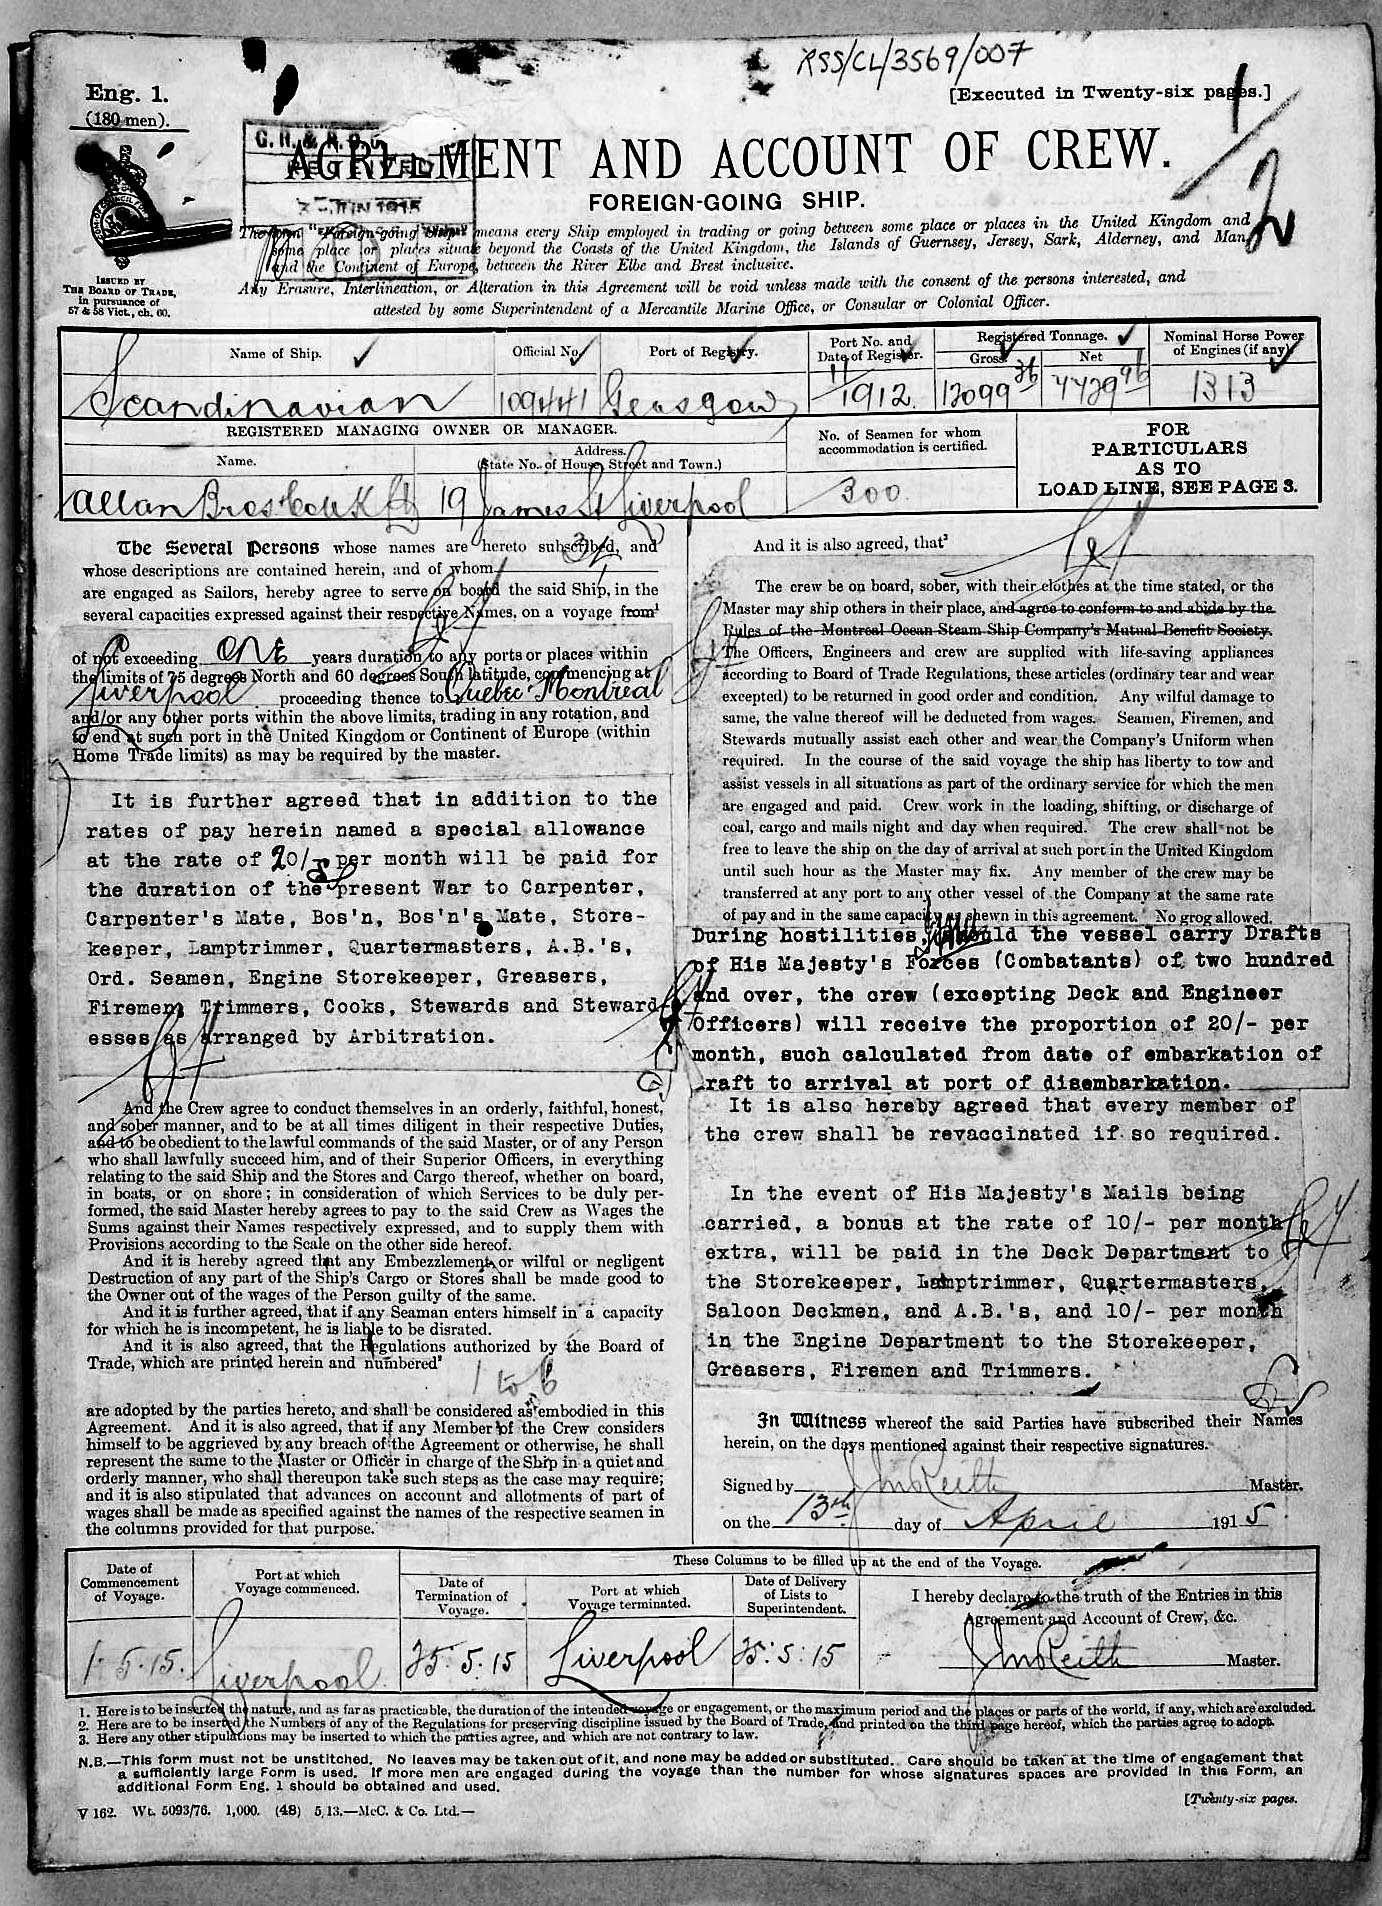 RSS/CL/3569/007
Eng. 1.
(180 men).
[Executed in Twenty-six pages.]
1/2
G. R. & R.
AGREEMENT AND ACCOUNT OF CREW.
FOREIGN-GOING SHIP.
JUN 1915
The term "Foreign-going Ship" means every Ship employed in trading or going between some place or places in the United Kingdom and
some place or places situate beyond the Coasts of the United Kingdom, the Islands of Guernsey, Jersey, Sark, Alderney, and Man,
and the Continent of Europe, between the River Elbe and Brest inclusive.
Any Erasure, Interlineation, or Alteration in this Agreement will be void unless made with the consent of the persons interested, and
attested by some Superintendent of a Mercantile Marine Office, or Consular or Colonial Officer.
ISSUED BY
THE BOARD OF TRADE,
in pursuance of
57 & 58 Vict., ch. 60.
Name of Ship.
Official No.
Port of Registry.
Port No. and
Date of Register.
Registered Tonnage.
Gross.
Net
Nominal Horse Power
of Engines (if any)
Scandinavian
109441
Glasgow
11/1912
12099 36
7729 96
1313
REGISTERED MANAGING OWNER OR MANAGER.
Name.
Address.
(State No. of House, Street and Town.)
No. of Seamen for whom
accommodation is certified.
FOR
PARTICULARS
AS TO
LOAD LINE, SEE PAGE 3.
Allan Bros & Co U.K. Ltd
19 James St Liverpool
300
The Several Persons whose names are hereto subscribed, and
whose descriptions are contained herein, and of whom 34
are engaged as Sailors, hereby agree to serve on board the said Ship, in the
several capacities expressed against their respective Names, on a voyage from¹
of not exceeding ONE years duration to any ports or places within
the limits of 75 degrees North and 60 degrees South latitude, commencing at
Liverpool proceeding thence to Quebec Montreal
and/or any other ports within the above limits, trading in any rotation, and
to end at such port in the United Kingdom or Continent of Europe (within
Home Trade limits) as may be required by the master.
It is further agreed that in addition to the
rates of pay herein named a special allowance
at the rate of 20/- per month will be paid for
the duration of the present War to Carpenter,
Carpenter's Mate, Bos'n, Bos'n's Mate, Store-
keeper, Lamptrimmer, Quartermasters, A.B.'s,
Ord. Seamen, Engine Storekeeper, Greasers,
Firemen, Trimmers, Cooks, Stewards and Steward-
esses as arranged by Arbitration.
And the Crew agree to conduct themselves in an orderly, faithful, honest,
and sober manner, and to be at all times diligent in their respective Duties,
and to be obedient to the lawful commands of the said Master, or of any Person
who shall lawfully succeed him, and of their Superior Officers, in everything
relating to the said Ship and the Stores and Cargo thereof, whether on board,
in boats, or on shore; in consideration of which Services to be duly per-
formed, the said Master hereby agrees to pay to the said Crew as Wages the
Sums against their Names respectively expressed, and to supply them with
Provisions according to the Scale on the other side hereof.
And it is hereby agreed that any Embezzlement, or wilful or negligent
Destruction of any part of the Ship's Cargo or Stores shall be made good to
the Owner out of the wages of the Person guilty of the same.
And it is further agreed, that if any Seaman enters himself in a capacity
for which he is incompetent, he is liable to be disrated.
And it is also agreed, that the Regulations authorized by the Board of
Trade, which are printed herein and numbered²
1 to 6
are adopted by the parties hereto, and shall be considered as embodied in this
Agreement. And it is also agreed, that if any Member of the Crew considers
himself to be aggrieved by any breach of the Agreement or otherwise, he shall
represent the same to the Master or Officer in charge of the Ship in a quiet and
orderly manner, who shall thereupon take such steps as the case may require;
and it is also stipulated that advances on account and allotments of part of
wages shall be made as specified against the names of the respective seamen in
the columns provided for that purpose.
And it is also agreed, that³
The crew be on board, sober, with their clothes at the time stated, or the
Master may ship others in their place, and agree to conform to and abide by the
Rules of the Montreal Ocean Steam Ship Company's Mutual Benefit Society.
The Officers, Engineers and crew are supplied with life-saving appliances
according to Board of Trade Regulations, these articles (ordinary tear and wear
excepted) to be returned in good order and condition. Any wilful damage to
same, the value thereof will be deducted from wages. Seamen, Firemen, and
Stewards mutually assist each other and wear the Company's Uniform when
required. In the course of the said voyage the ship has liberty to tow and
assist vessels in all situations as part of the ordinary service for which the men
are engaged and paid. Crew work in the loading, shifting, or discharge of
coal, cargo and mails night and day when required. The crew shall not be
free to leave the ship on the day of arrival at such port in the United Kingdom
until such hour as the Master may fix. Any member of the crew may be
transferred at any port to any other vessel of the Company at the same rate
of pay and in the same capacity as shewn in this agreement. No grog allowed.
During hostilities, should the vessel carry Drafts
of His Majesty's Forces (Combatants) of two hundred
and over, the crew (excepting Deck and Engineer
Officers) will receive the proportion of 20/- per
month, such calculated from date of embarkation of
raft to arrival at port of disembarkation.
It is also hereby agreed that every member of
the crew shall be revaccinated if so required.
In the event of His Majesty's Mails being
carried, a bonus at the rate of 10/- per month
extra, will be paid in the Deck Department to
the Storekeeper, Lamptrimmer, Quartermasters,
Saloon Deckmen, and A.B.'s, and 10/- per month
in the Engine Department to the Storekeeper,
Greasers, Firemen and Trimmers.
In Witness whereof the said Parties have subscribed their Names
herein, on the days mentioned against their respective signatures.
Signed by J McKeith Master.
on the 13th day of April 1915
Date of
Commencement
of Voyage.
Port at which
Voyage commenced.
These Columns to be filled up at the end of the Voyage.
Date of
Termination of
Voyage.
Port at which
Voyage terminated.
Date of Delivery
of Lists to
Superintendent.
I hereby declare to the truth of the Entries in this
Agreement and Account of Crew, &c.
1.5.15.
Liverpool
25.5.15
Liverpool
25:5:15
J McKeith Master.
1. Here is to be inserted the nature, and as far as practicable, the duration of the intended voyage or engagement, or the maximum period and the places or parts of the world, if any, which are excluded.
2. Here are to be inserted the Numbers of any of the Regulations for preserving discipline issued by the Board of Trade, and printed on the third page hereof, which the parties agree to adopt.
3. Here any other stipulations may be inserted to which the parties agree, and which are not contrary to law.
N.B.—This form must not be unstitched. No leaves may be taken out of it, and none may be added or substituted. Care should be taken at the time of engagement that
a sufficiently large Form is used. If more men are engaged during the voyage than the number for whose signatures spaces are provided in this Form, an
additional Form Eng. 1 should be obtained and used.
[Twenty-six pages.
V 162. Wt. 5093/76. 1,000. (48) 5,13.—McC. & Co. Ltd.—